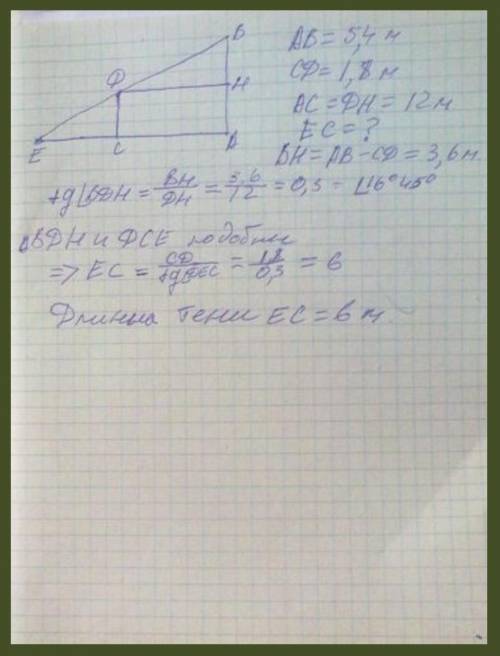 B
Ф
H
E
C
A
AB = 5,4 м
СФ = 1,8 м
AC = ФH = 12 м
EC = ?
BH = AB - СФ = 3,6 м
tg∠BФH = BH/ФH = 3,6/12 = 0,3 - ∠16°45°
∆BФH и ФCE подобны
=> EC = СФ/tgФEC = 1,8/0,3 = 6
Длинна тени EC = 6 м